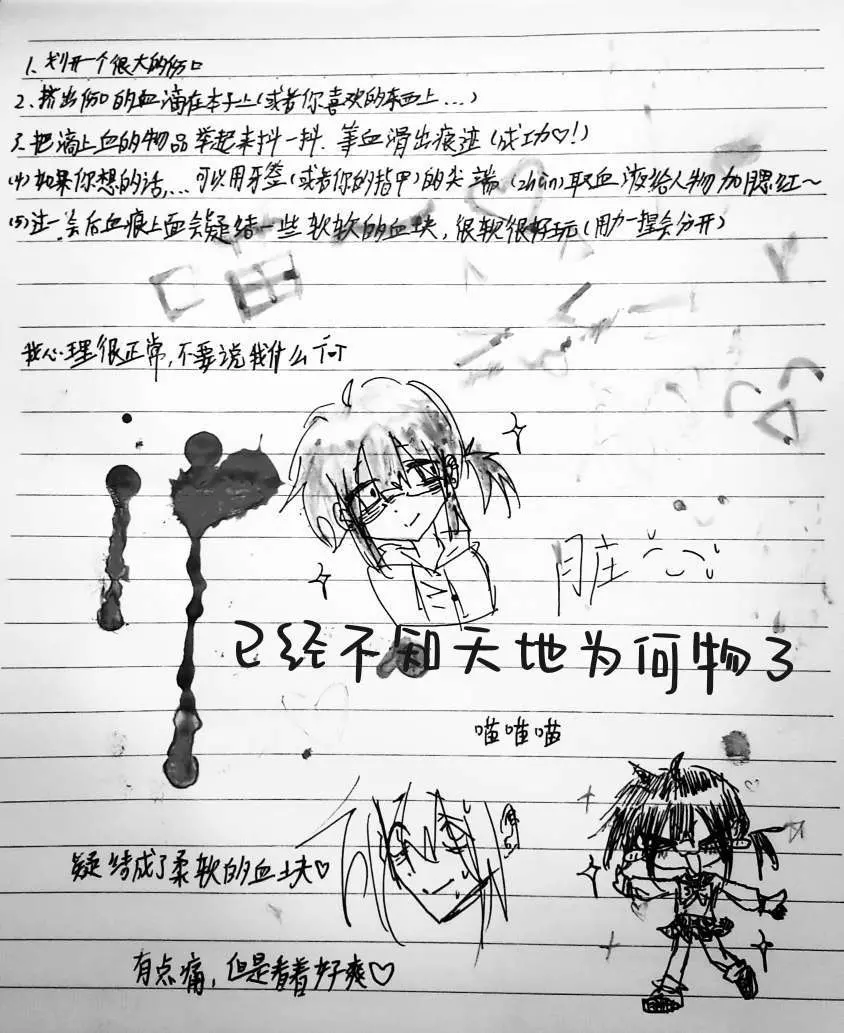 1、划开一个很大的伤口
2、挤出伤口的血滴在本子上(或者你喜欢的东西上...)
3、把滴上血的物品举起来抖一抖、等血滑出痕迹(成功♡!)
(4)如果你想的话,...可以用牙签(或者你的指甲)的尖端(zhān)取血液给人物加腮红~
(5)过一会后血痕上面会凝结一些软软的血块,很软很好玩(用力一捏会分开)
喵
我心理很正常,不要说我什么
脏
已经不知天地为何物了
喵喵喵
凝结成了柔软的血块♡
有点痛,但是看着好爽♡